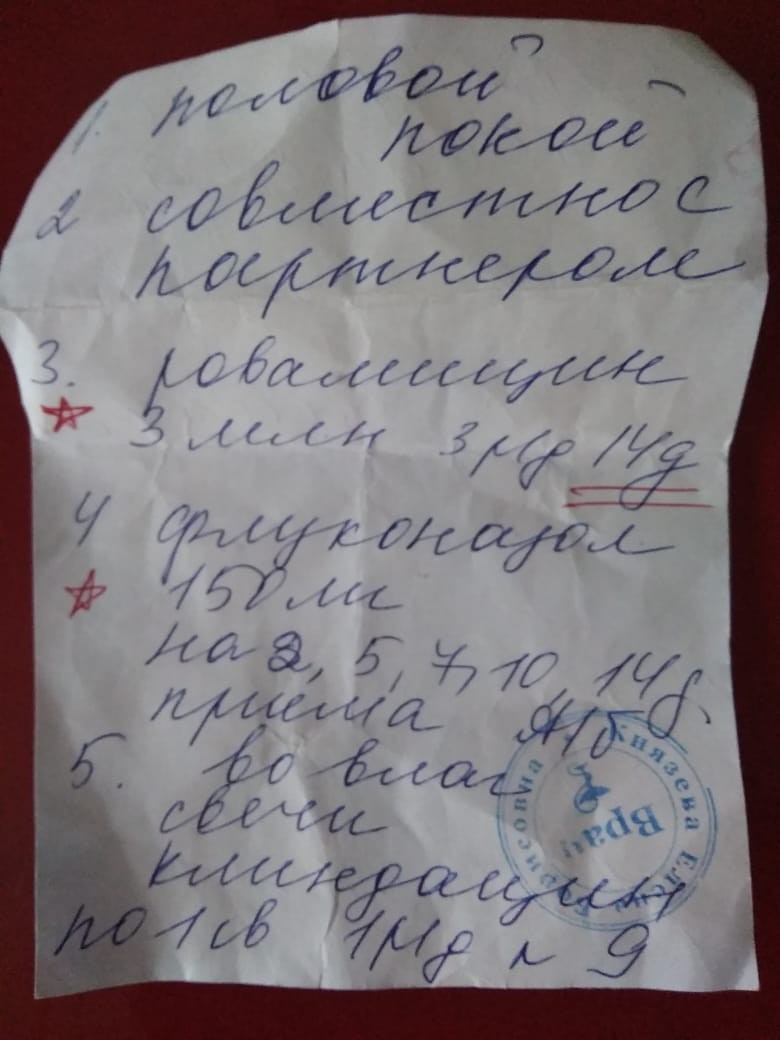 1. половой
покой
2 совместно с
партнером
3. ровамицин
3 млн 3 р/д 14д
4 флуконазол
150 мг
на 2, 5, 7, 10, 14 д
приема А/б
5. во влаг
свечи
клиндацин
по 1 св 1 р/д N 9
Князева Елена Борисовна
Врач